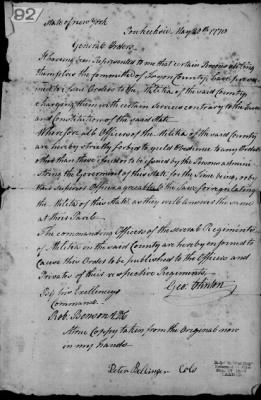 92
State of new york
Poukeekcie, May 20th 17
General Orders
It having been Represented to me that certain Persons
the Committee of Tryon County, have presumed
to Issue Orders to the Militia of the said County
charging them with certain Services contrary to the Laws
and Constitution of the said State
Wherefore all Officers of the Militia of the said County
are hereby Strictly forbid to yield Obedience to any Orders
other than those issued or to be issued by the Person adminis
tring the Government of this State for the time being, or by
their superior Officers agreeable to the Law for regulating
the Militia of this State as they will answer the same
at their Peril.
The commanding Officers of the several Regiments
of Militia in the said County are hereby enformed to
cause this Orders to be published to the Officers and
Privates of their respective Regiments.
Geo. Clinton
By his Excellencys
Command.
Rob. Benson
A true Coppy taken from the Original now
in my hands
Peter Bellinger Colo